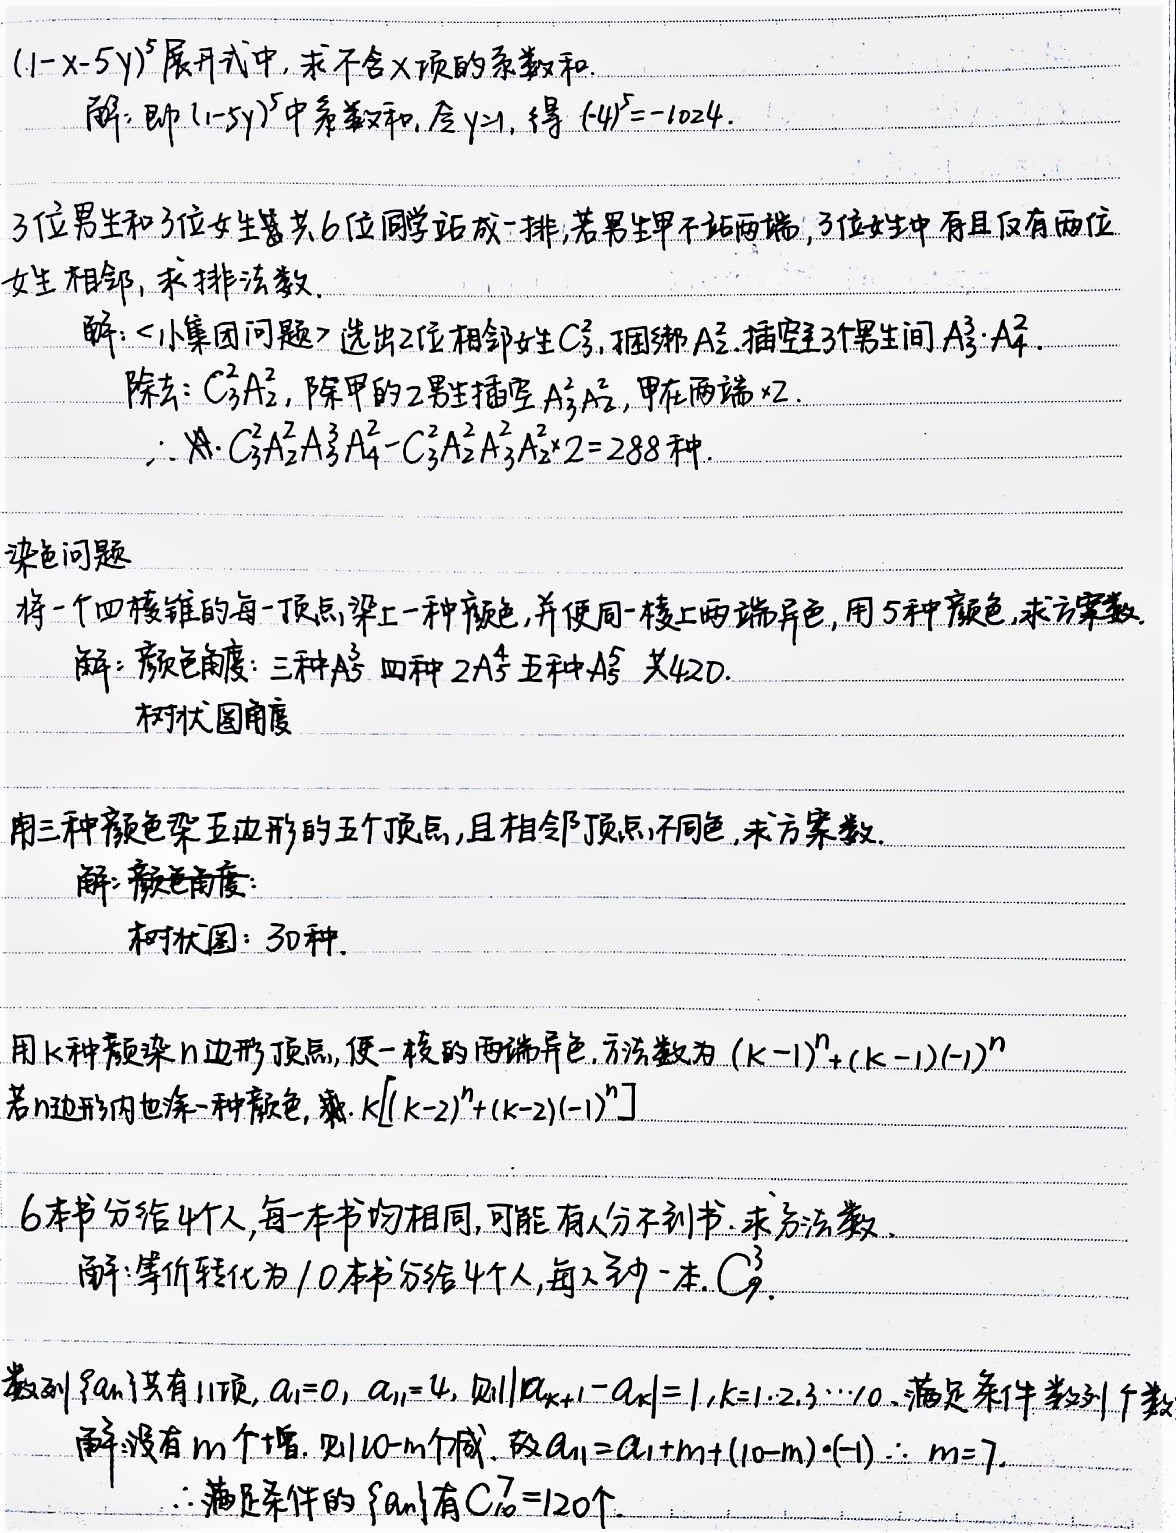 (1-x-5y)⁵展开式中,求不含x项的系数和.
解:即(1-5y)⁵中系数和,令y=1,得(-4)⁵=-1024.
3位男生和3位女生共6位同学站成一排,若男生甲不站两端,3位女生中有且仅有两位
女生相邻,求排法数.
解:<小集团问题>选出2位相邻女生C₃²,捆绑A₂².插空至3个男生间A₃³·A₄².
除去:C₃²A₂²,除甲的2男生插空A₃²A₂²,甲在两端×2.
∴C₃²A₂²A₃³A₄²-C₃²A₂²A₃²A₂²×2=288种.
染色问题
将一个四棱锥的每一顶点染上一种颜色,并使同一棱上两端异色,用5种颜色,求方案数.
解:颜色角度:三种A₅³ 四种2A₅⁴ 五种A₅⁵ 共420.
树状图角度
用三种颜色染五边形的五个顶点,且相邻顶点不同色,求方案数.
解:颜色角度:
树状图:30种.
用K种颜染n边形顶点,使一棱的两端异色.方法数为(K-1)ⁿ+(K-1)(-1)ⁿ
若n边形内也涂一种颜色,K[(K-2)ⁿ+(K-2)(-1)ⁿ]
6本书分给4个人,每一本书均相同,可能有人分不到书.求方法数.
解:等价转化为10本书分给4个人,每人至少一本.C₉³.
数列{an}共有11项,a₁=0,a₁₁=4,则|aₖ₊₁-aₖ|=1,k=1.2.3…10、满足条件数列个数
解:设有m个增.则10-m个减.故a₁₁=a₁+m+(10-m)·(-1)∴m=7.
∴满足条件的{an}有C₁₀⁷=120个.